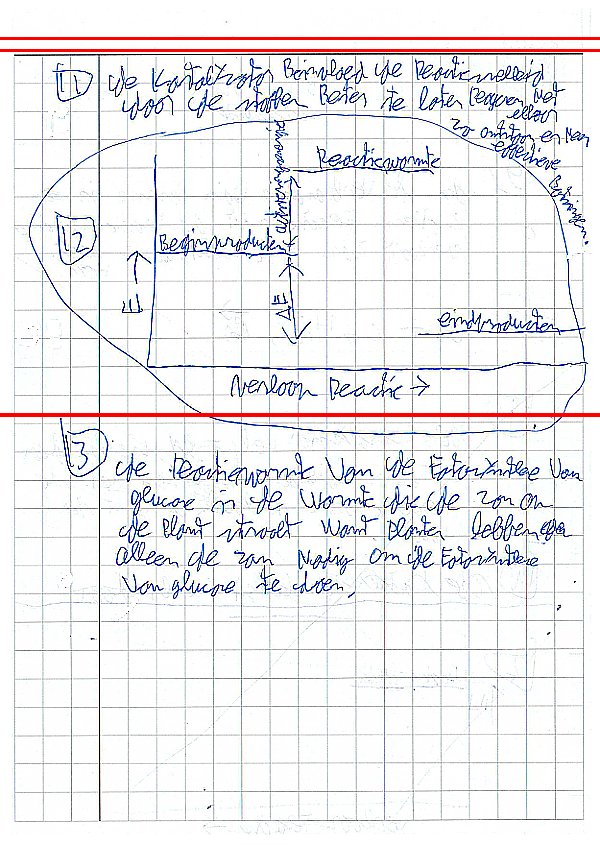 11 de Katalysator Beinvloed de Reactiesnelheid
door de stoffen Beter te laten Reageren Met
elkaar
zo ontstaan er Meer
effectieve
Botsingen.
12
activeringsenergie
Reactiewarmte
Beginproducten
E →
ΔE
eindproducten
Verloop Reactie →
13
de reactiewarmte Van de Fotosynthese Van
glucose is de Warmte die de zon on
de Plant straalt Want Planten hebben
alleen de zon Nodig om de Fotosynthese
Van glucose te doen.